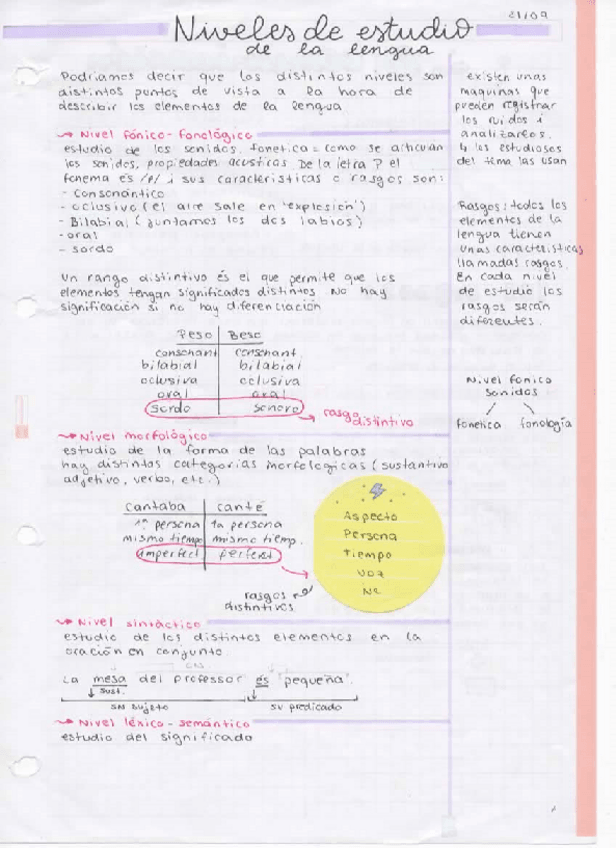 21/09
Niveles de estudio
de la lengua
Podríamos decir que los distintos niveles son
distintos puntos de vista a la hora de
describir los elementos de la lengua
Nivel fónico-fonológico
estudio de los sonidos. fonetica = como se articulan
los sonidos, propiedades acusticas De la letra P el
fonema es /p/ i sus características o rasgos son:
- Consonántico
- oclusivo (el aire sale en "explosión")
- Bilabial (juntamos los dos labios)
- oral
- sordo
un rango distintivo és el que permite que los
elementos tengan significados distintos No hay
significación si no hay diferenciación
Peso Beso
consonant consonant
bilabial bilabial
oclusiva oclusiva
oral oral
sordo sonoro
rasgo
distintivo
Nivel morfológico
estudio de la forma de las palabras
hay distintos categorias morfologicas (sustantivo
adjetivo, verbo, etc.)
Cantaba canté
1ª persona 1a persona
mismo tiempo mismo tiemp.
imperfect perfect
rasgos
distintivos
Aspecto
Persona
Tiempo
Voz
Nivel sintáctico
estudio de los distintos elementos en la
oración en conjunto.
La mesa del professor és "pequeña".
Sust.
SN sujeto SV predicado
Nivel léxico-semántico
estudio del significado
existen unas
maquinas que
pueden registrar
los ruidos i
analizarlos.
los estudiosos
del tema las usan
Rasgos: todos los
elementos de la
lengua tienen
unas características
llamadas rasgos.
En cada nivel
de estudio los
rasgos serán
diferentes.
Nivel fonico
sonidos
fonetica fonología